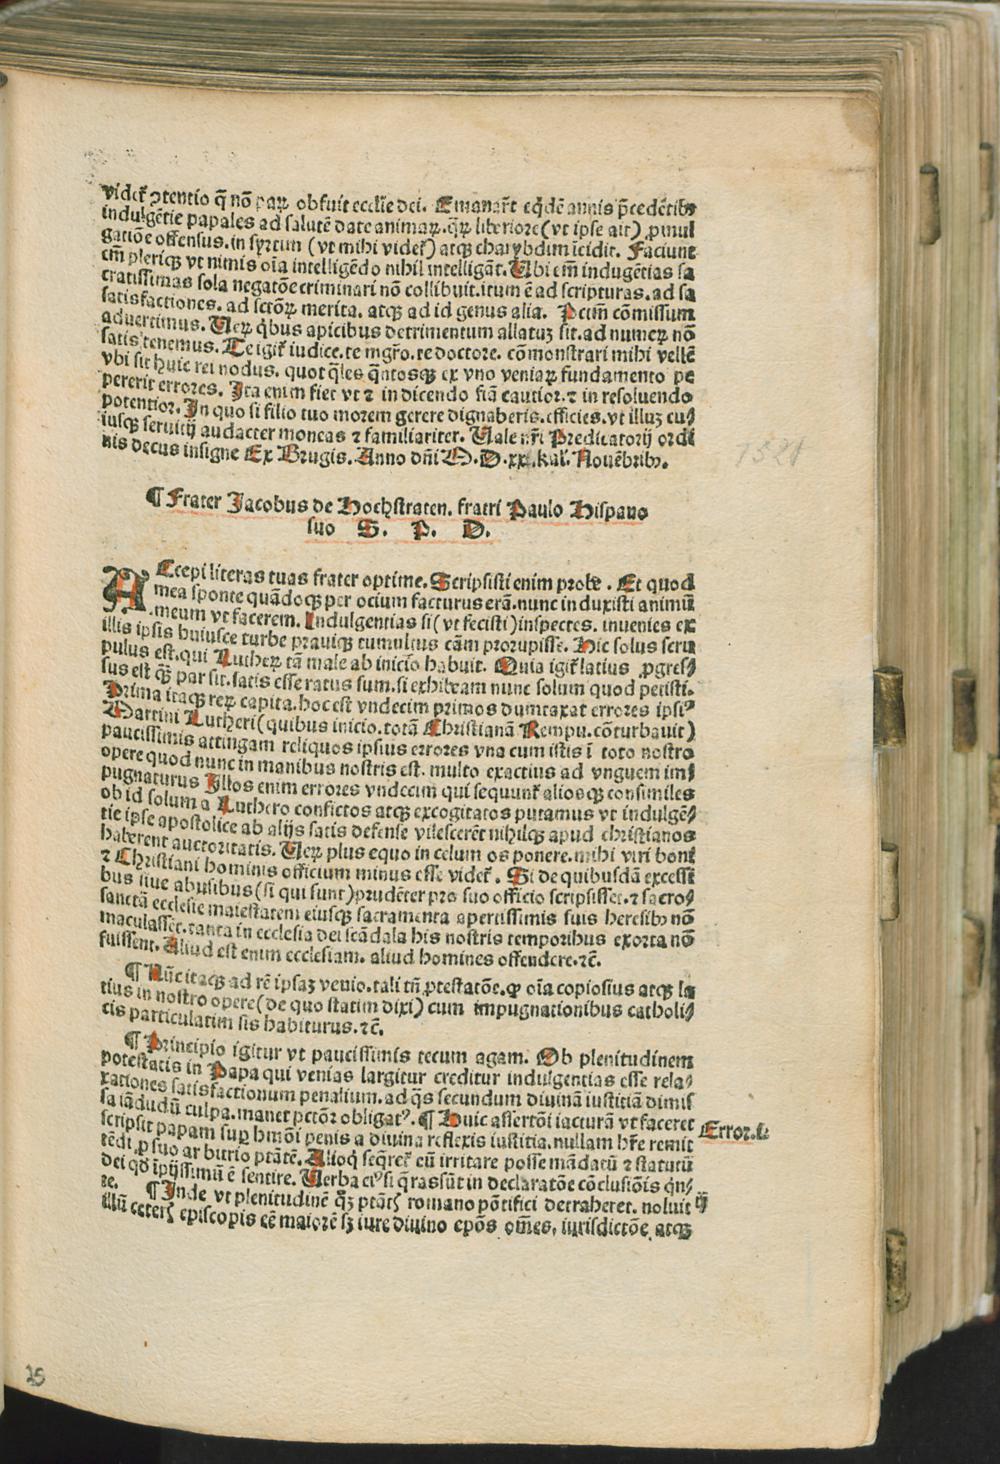 videt̃ ꝯtentio q̄ nō paꝝ obfuit eccl'ie dei. Emanar̃t eq̇dē annis p̄cedētibꝰ
indulgētie papales ad salutē date animaꝝ. q̄ꝝ liberiore (vt ipse ait) ꝓmul
gatiōe offensus. in syrtim (vt mihi videt̃) atqꝫ charybdim īcidit. Faciunt
em̄ pleriqꝫ vt nimis oīa intelligēdo nihil intelligāt. Ubi em̄ indugētias sa
cratissimas sola negatōe criminari nō collibuit. itum ē ad scripturas. ad sa
satisfactiones. ad sctōꝝ merita. atqꝫ ad id genus alia. Pcim̄ cōmissum
aduertimus. Ueꝝ q̇bus apicibus detrimentum allatuꝫ sit. ad numeꝝ nō
satis tenemus. Te igit̃ iudice. te mgr̄o. te doctore. cōmonstrari mihi vellē
vbi sit huic rei nodus. quot q̄les q̄ntosqꝫ ex vno veniaꝝ fundamento pe
pererit errores. Ita enim fiet vt ⁊ in dicendo fiā cautior. ⁊ in resoluendo
potentior. In quo si filio tuo morem gerere dignaberis. efficies. vt illuꝫ cu⸗
iusqꝫ seruitij audacter moneas ⁊ familiariter. Uale nr̄i Predicatorij ordi
nis decus insigne Ex Brugis. Anno dn̄i M.D.xx. kal'. Nouēbribꝰ.
¶ Frater Jacobus de Hochstraten. fratri Paulo Hispano
suo S. P. D.
ACcepi literas tuas frater optime. Scripsisti enim probe. Et quod
mea sponte quādoqꝫ per ocium facturus erā. nunc induxisti animū
meum vt facerem. Indulgentias si (vt fecisti) inspectes. inuenies ex
illis ipsis huiusce turbe prauiqꝫ tumultus cām prorupisse. Hic solus scru
pulus est. qui Lutheꝝ tā male ab inicio habuit. Quia igit̃ latius ꝓgres⸗
sus est qꝫ par sit. satis esse ratus sum. si exhibeam nunc solum quod petisti.
Prima itaqꝫ reꝝ capita. hoc est vndecim primos dumtaxat errores ipsiꝰ
Martini Lutheri (quibus inicio. totā Christianā Rempu. cōturbauit)
paucissimis attingam reliquos ipsius errores vna cum istis ī toto nostro
opere quod nunc in manibus nostris est. multo exactius ad vnguem im⸗
pugnaturus Illos enim errores vndecim qui sequunt̃ aliosqꝫ consimiles
ob id solum a Luthero confictos atqꝫ excogitatos putamus vt indulgē⸗
tie ipse apostolice ab alijs satis defense vilescerēt nihilqꝫ apud christianos
haberent auctoritatis. Ueꝝ plus equo in celum os ponere. mihi viri boni
⁊ Christiani hominis officium minus esse videt̃. Si de quibusdā excessi
bus siue abusibus (si qui sunt) prudēter pro suo officio scripsisset. ⁊ sacro⸗
sanctā ecclesie maiestatem eiusqꝫ sacramenta apertissimis suis heresibꝰ nō
maculasset. tanta in ecclesia dei scādala his nostris temporibus exorta nō
fuissent. Aliud est enim ecclesiam. aliud homines offendere. ⁊c̄.
¶ Nūc itaqꝫ ad rē ipsaꝫ venio. tali tn̄ ꝓtestatōe. ꝙ oīa copiosius atqꝫ la
tius in nostro opere (de quo statim dixi) cum impugnationibus catholi⸗
cis particulatim sis habiturus. ⁊c̄.
¶ Principio igitur vt paucissimis tecum agam. Ob plenitudinem
potestatis in Papa qui venias largitur creditur indulgentias esse rela⸗
xationes satisfactionum penalium. ad q̄s secundum diuinā iustitiā dimis
sa iādudū culpa. manet pctōr obligatꝰ. ¶ Huic assertōi iacturā vt faceret
scripsit papam suꝑ hmōi penis a diuina reflexis iustitia. nullam hr̄e remit
tēdi ꝓ suo arbitrio ptātē. Alioq̇ seq̄ret̃ eū irritare posse mādatū ⁊ statutū
dei qd̄ īpijssimū ē sentire. Uerba eiꝰ si q̄ras sūt in declaratōe cōclusiōis q̇n⸗
te. ¶ Inde vt plenitudinē qꝫ ptātꝭ romano pōtifici detraheret. noluit
illū ceterꝭ episcopis eē maiorē sꝫ iure diuino epōs om̄es. iurisdictōe atqꝫ
Error. i.
ij
25
1521